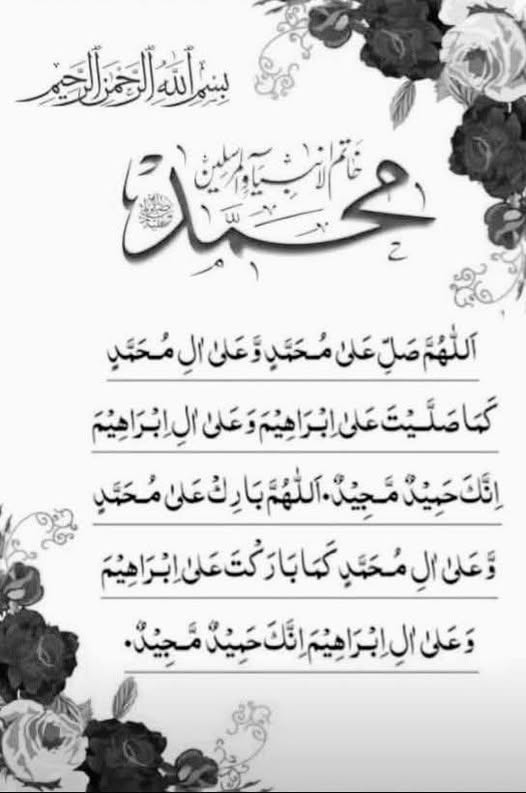 بِسْمِ ٱللَّٰهِ ٱلرَّحْمَٰنِ ٱلرَّحِيمِ
خاتم الانبیآء والمرسلین
محمد ﷺ
اَللّٰهُمَّ صَلِّ عَلٰى مُحَمَّدٍ وَّعَلٰى اٰلِ مُحَمَّدٍ
كَمَا صَلَّيْتَ عَلٰى اِبْرَاهِيْمَ وَعَلٰى اٰلِ اِبْرَاهِيْمَ
اِنَّكَ حَمِيْدٌ مَّجِيْدٌ. اَللّٰهُمَّ بَارِكْ عَلٰى مُحَمَّدٍ
وَّعَلٰى اٰلِ مُحَمَّدٍ كَمَا بَارَكْتَ عَلٰى اِبْرَاهِيْمَ
وَعَلٰى اٰلِ اِبْرَاهِيْمَ اِنَّكَ حَمِيْدٌ مَّجِيْدٌ.